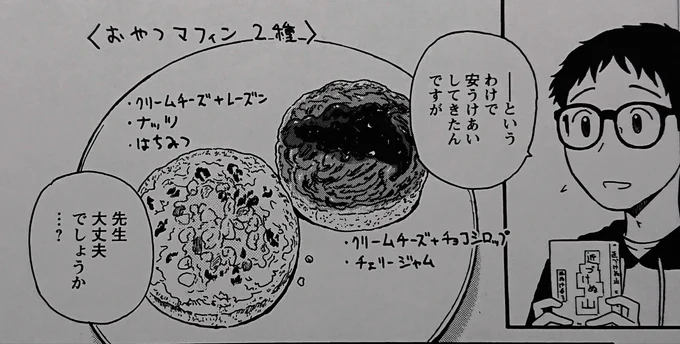 〈おやつマフィン 2種〉
――という
わけで
安うけあい
してきたん
ですが
・クリームチーズ+レーズン
・ナッツ
・はちみつ
・クリームチーズ+チョコシロップ
・チェリージャム
先生
大丈夫
でしょうか
…?
近づけぬ山